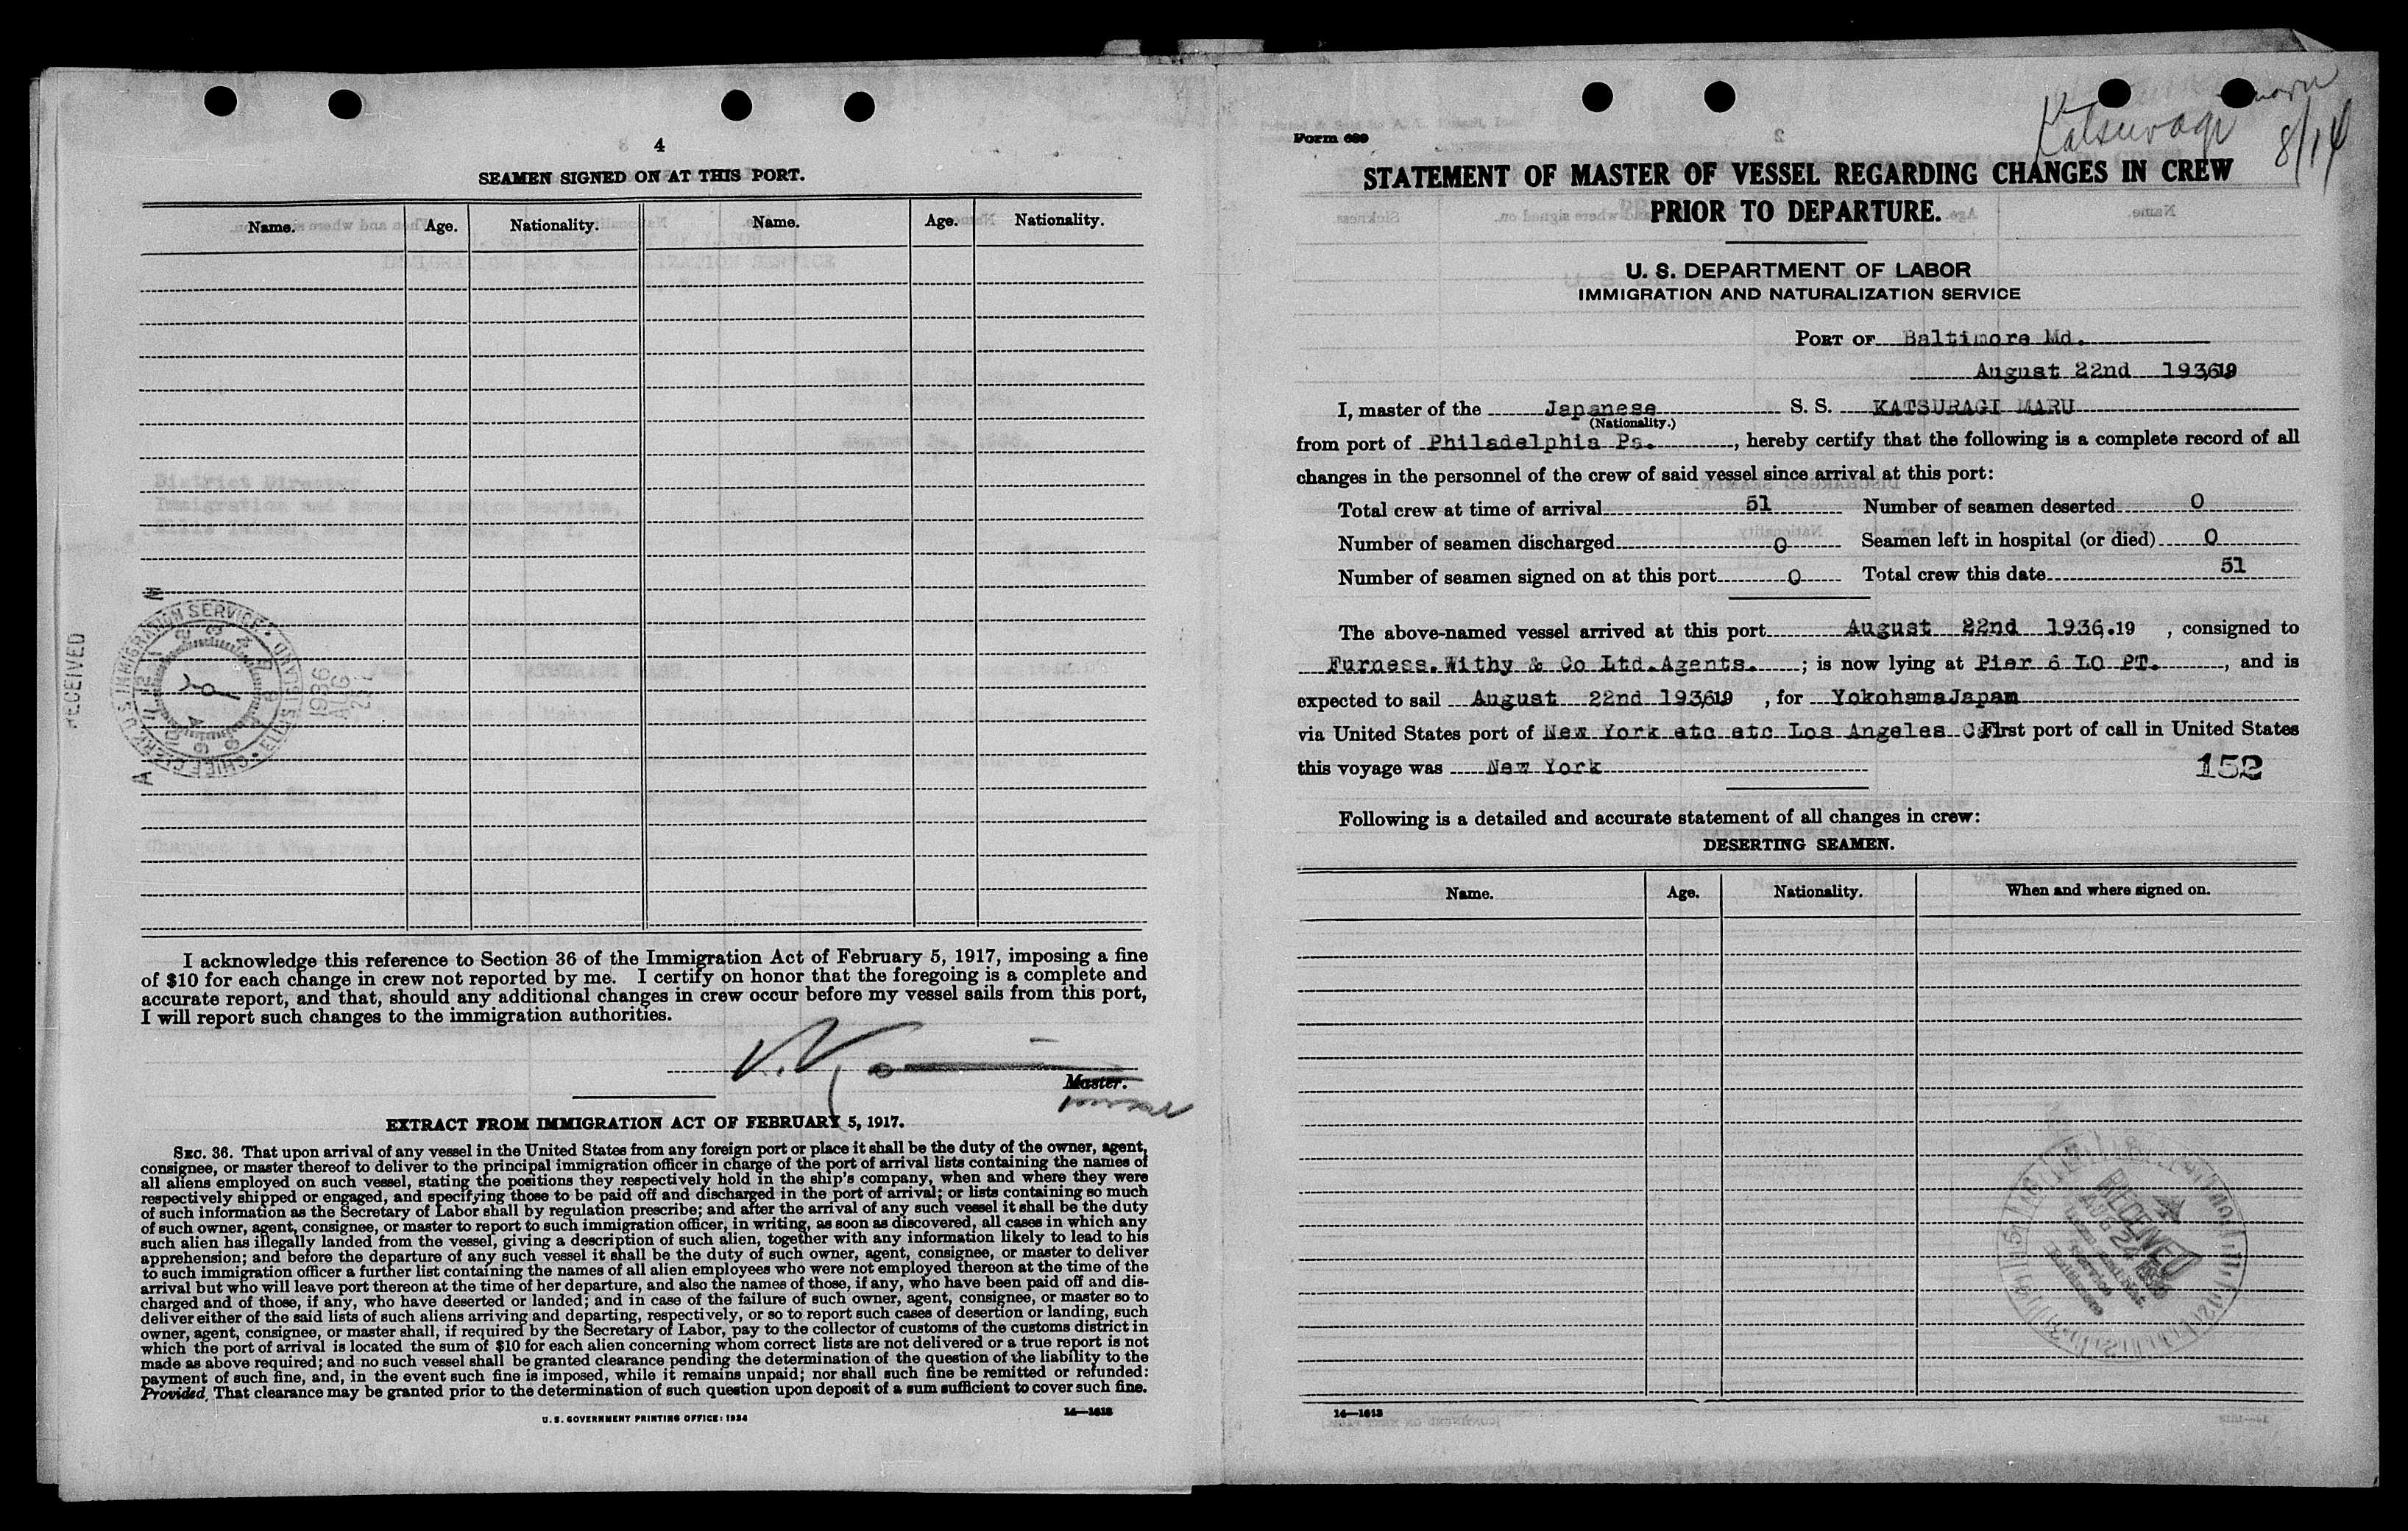 4
SEAMEN SIGNED ON AT THIS PORT.
Name. Age. Nationality. Name. Age. Nationality.
RECEIVED
CHIEF CLERK U.S. IMMIGRATION SERVICE · ELLIS ISLAND
1936
AUG
I acknowledge this reference to Section 36 of the Immigration Act of February 5, 1917, imposing a fine
of $10 for each change in crew not reported by me. I certify on honor that the foregoing is a complete and
accurate report, and that, should any additional changes in crew occur before my vessel sails from this port,
I will report such changes to the immigration authorities.
Master.
EXTRACT FROM IMMIGRATION ACT OF FEBRUARY 5, 1917.
SEC. 36. That upon arrival of any vessel in the United States from any foreign port or place it shall be the duty of the owner, agent,
consignee, or master thereof to deliver to the principal immigration officer in charge of the port of arrival lists containing the names of
all aliens employed on such vessel, stating the positions they respectively hold in the ship's company, when and where they were
respectively shipped or engaged, and specifying those to be paid off and discharged in the port of arrival; or lists containing so much
of such information as the Secretary of Labor shall by regulation prescribe; and after the arrival of any such vessel it shall be the duty
of such owner, agent, consignee, or master to report to such immigration officer, in writing, as soon as discovered, all cases in which any
such alien has illegally landed from the vessel, giving a description of such alien, together with any information likely to lead to his
apprehension; and before the departure of any such vessel it shall be the duty of such owner, agent, consignee, or master to deliver
to such immigration officer a further list containing the names of all alien employees who were not employed thereon at the time of the
arrival but who will leave port thereon at the time of her departure, and also the names of those, if any, who have been paid off and dis-
charged and of those, if any, who have deserted or landed; and in case of the failure of such owner, agent, consignee, or master so to
deliver either of the said lists of such aliens arriving and departing, respectively, or so to report such cases of desertion or landing, such
owner, agent, consignee, or master shall, if required by the Secretary of Labor, pay to the collector of customs of the customs district in
which the port of arrival is located the sum of $10 for each alien concerning whom correct lists are not delivered or a true report is not
made as above required; and no such vessel shall be granted clearance pending the determination of the question of the liability to the
payment of such fine, and, in the event such fine is imposed, while it remains unpaid; nor shall such fine be remitted or refunded:
Provided, That clearance may be granted prior to the determination of such question upon deposit of a sum sufficient to cover such fine.
U. S. GOVERNMENT PRINTING OFFICE: 1934 14—1613
Katsuragi Maru
8/14
Form 689
STATEMENT OF MASTER OF VESSEL REGARDING CHANGES IN CREW
PRIOR TO DEPARTURE.
U. S. DEPARTMENT OF LABOR
IMMIGRATION AND NATURALIZATION SERVICE
PORT OF Baltimore Md.
August 22nd 1936, 19
I, master of the Japanese S. S. KATSURAGI MARU
(Nationality.)
from port of Philadelphia Pa. , hereby certify that the following is a complete record of all
changes in the personnel of the crew of said vessel since arrival at this port:
Total crew at time of arrival 51 Number of seamen deserted 0
Number of seamen discharged 0 Seamen left in hospital (or died) 0
Number of seamen signed on at this port 0 Total crew this date 51
The above-named vessel arrived at this port August 22nd 1936. 19 , consigned to
Furness. Withy & Co Ltd. Agents. ; is now lying at Pier 6 LO PT. , and is
expected to sail August 22nd 1936, 19 , for Yokohama Japan
via United States port of New York etc etc Los Angeles Cal First port of call in United States
this voyage was New York
152
Following is a detailed and accurate statement of all changes in crew:
DESERTING SEAMEN.
Name. Age. Nationality. When and where signed on.
RECEIVED
AUG 24 1936
Imm. and Nat.
Service
Baltimore
14—1613